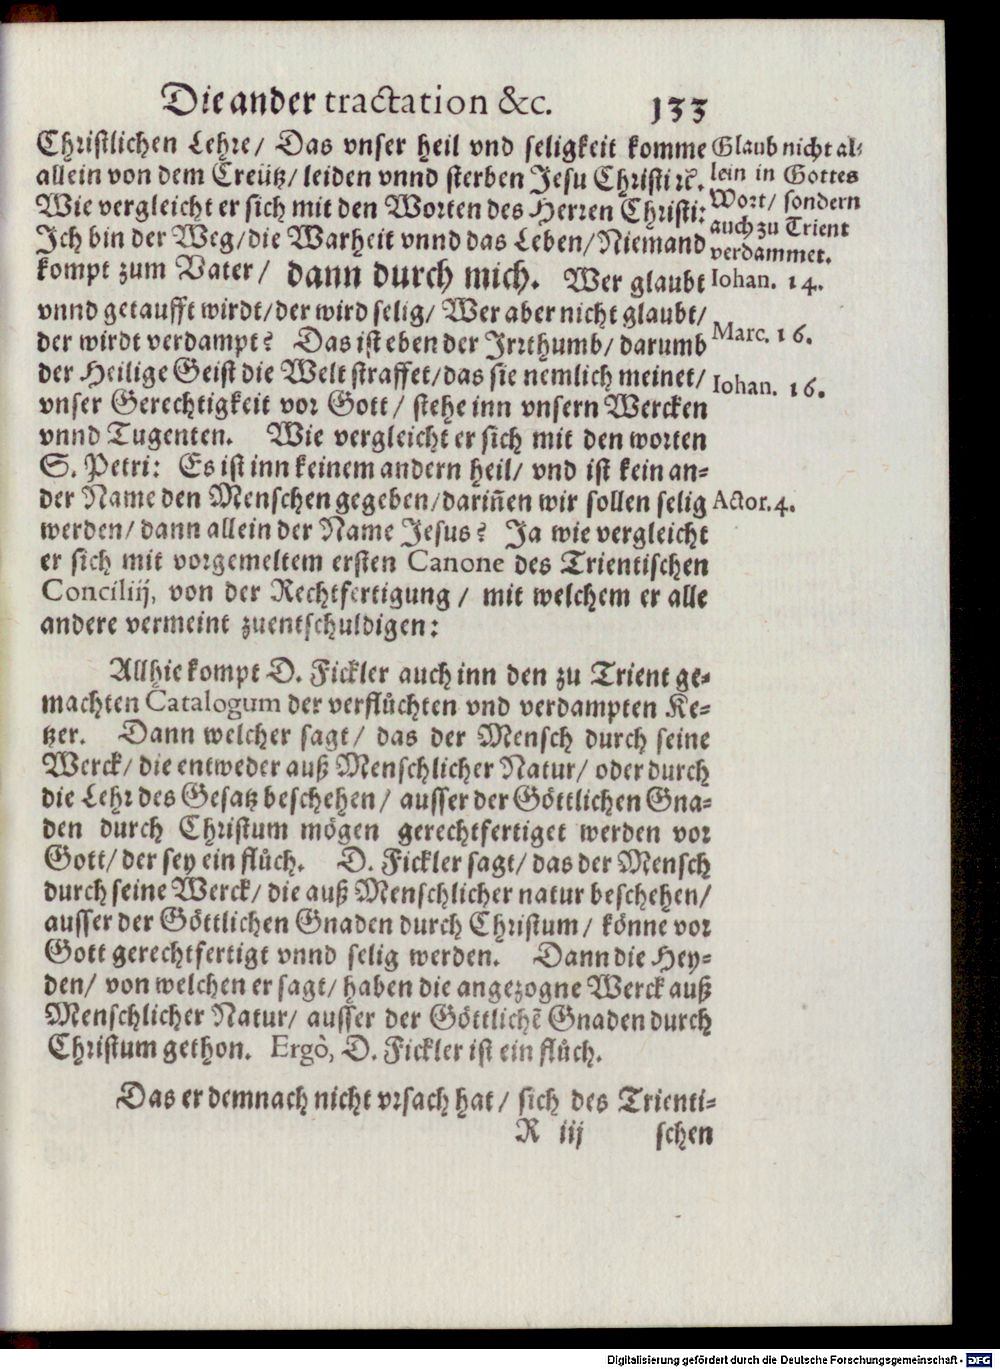 Die ander tractation &c. 133
Christlichen Lehre/ Das vnser heil vnd seligkeit komme
allein von dem Creütz/ leiden vnnd sterben Jesu Christi ꝛc̃.
Wie vergleicht er sich mit den Worten des Herren Christi:
Ich bin der Weg/ die Warheit vnnd das Leben/ Niemand
kompt zum Vater/ dann durch mich. Wer glaubt
vnnd getaufft wirdt/ der wird selig/ Wer aber nicht glaubt/
der wirdt verdampt? Das ist eben der Irrthumb/ darumb
der Heilige Geist die Welt straffet/ das sie nemlich meinet/
vnser Gerechtigkeit vor Gott/ stehe inn vnsern Wercken
vnnd Tugenten. Wie vergleicht er sich mit den worten
S. Petri: Es ist inn keinem andern heil/ vnd ist kein an-
der Name den Menschen gegeben/ dariñen wir sollen selig
werden/ dann allein der Name Jesus? Ja wie vergleicht
er sich mit vorgemeltem ersten Canone des Trientischen
Conciliij, von der Rechtfertigung/ mit welchem er alle
andere vermeint zuentschuldigen:
Glaub nicht al-
lein in Gottes
Wort/ sondern
auch zu Trient
verdammet.
Iohan. 14.
Marc. 16.
Iohan. 16.
Actor. 4.
Allhie kompt D. Fickler auch inn den zu Trient ge-
machten Catalogum der verflůchten vnd verdampten Ke-
tzer. Dann welcher sagt/ das der Mensch durch seine
Werck/ die entweder auß Menschlicher Natur/ oder durch
die Lehr des Gesatz beschehen/ ausser der Göttlichen Gna-
den durch Christum mögen gerechtfertiget werden vor
Gott/ der sey ein flůch. D. Fickler sagt/ das der Mensch
durch seine Werck/ die auß Menschlicher natur beschehen/
ausser der Göttlichen Gnaden durch Christum/ könne vor
Gott gerechtfertigt vnnd selig werden. Dann die Hey-
den/ von welchen er sagt/ haben die angezogne Werck auß
Menschlicher Natur/ ausser der Göttlichẽ Gnaden durch
Christum gethon. Ergò, D. Fickler ist ein flůch.
Das er demnach nicht vrsach hat/ sich des Trienti-
R iij schen
Digitalisierung gefördert durch die Deutsche Forschungsgemeinschaft - DFG